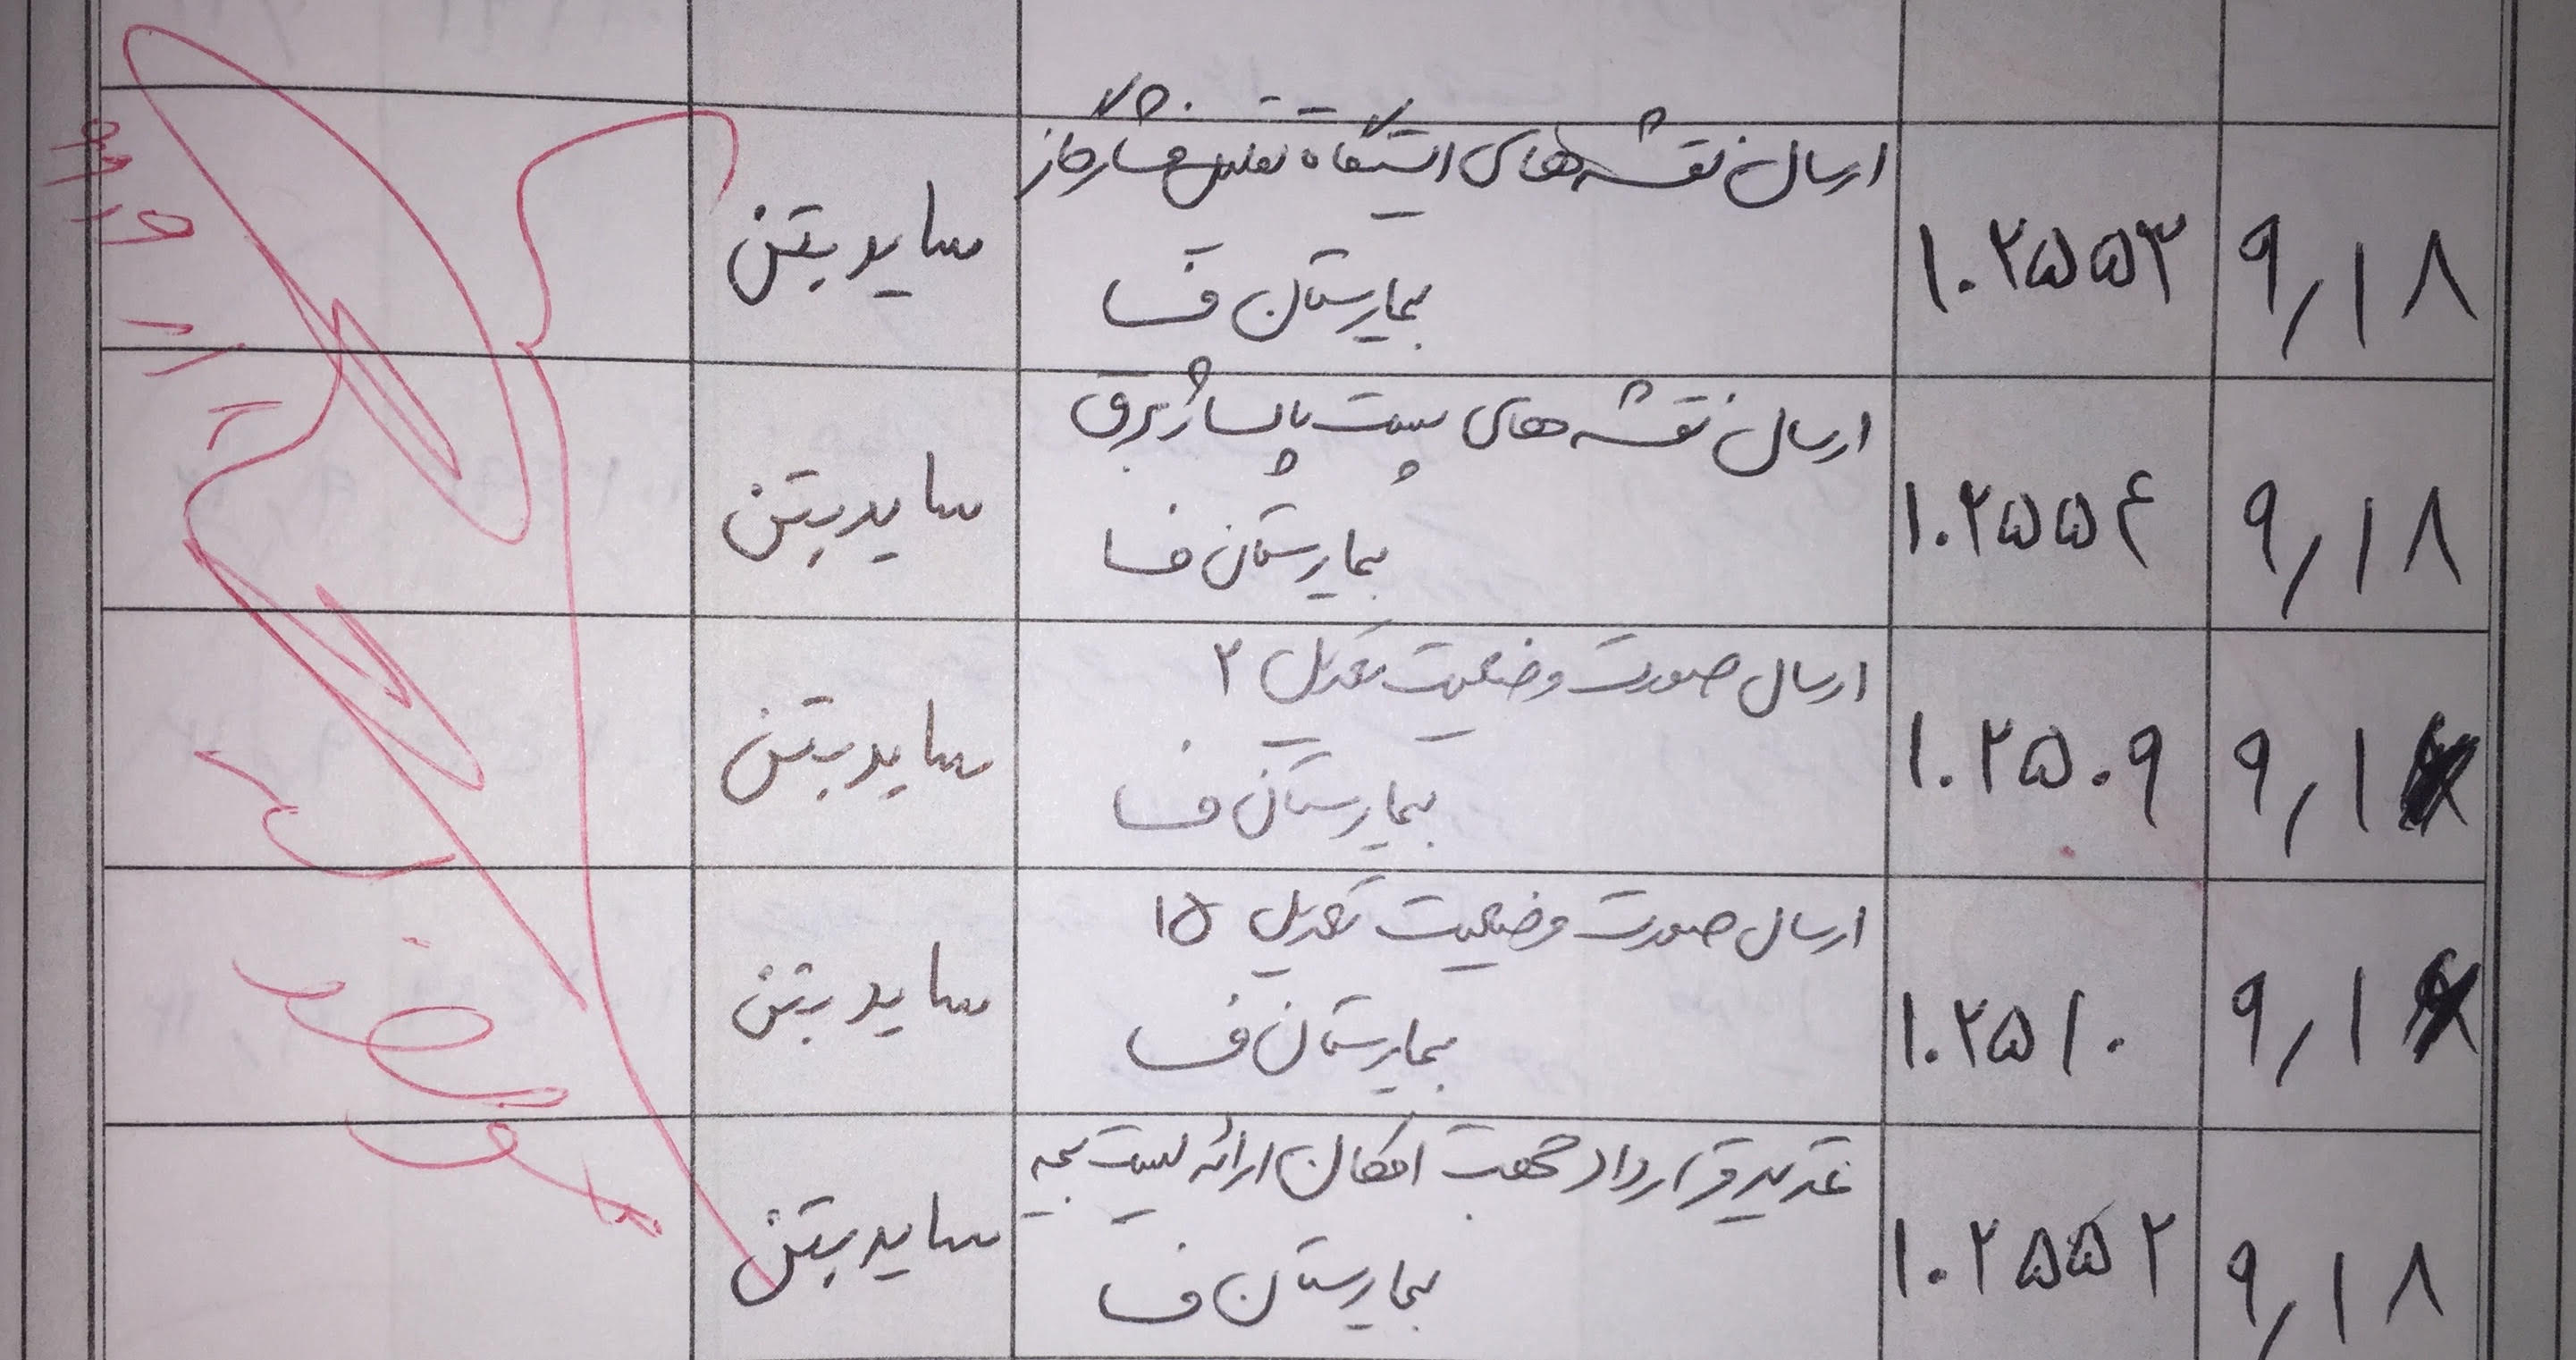 ۹/۱۸
۱۰۲۵۵۳
ارسال نقشه‌های ایستگاه تقلیل فشار گاز
بیمارستان فسا
ساید بتن
۹/۱۸
۱۰۲۵۵۴
ارسال نقشه‌های پست پاساژ برق
بیمارستان فسا
ساید بتن
۹/۱
۱۰۲۵۰۹
ارسال صورت وضعیت تعدیل ۲
بیمارستان فسا
ساید بتن
۹/۱
۱۰۲۵۱۰
ارسال صورت وضعیت تعدیل ۱۵
بیمارستان فسا
ساید بتن
۹/۱۸
۱۰۲۵۵۲
تمدید قرارداد جهت امکان ارائه لیست بیمه
بیمارستان فسا
ساید بتن